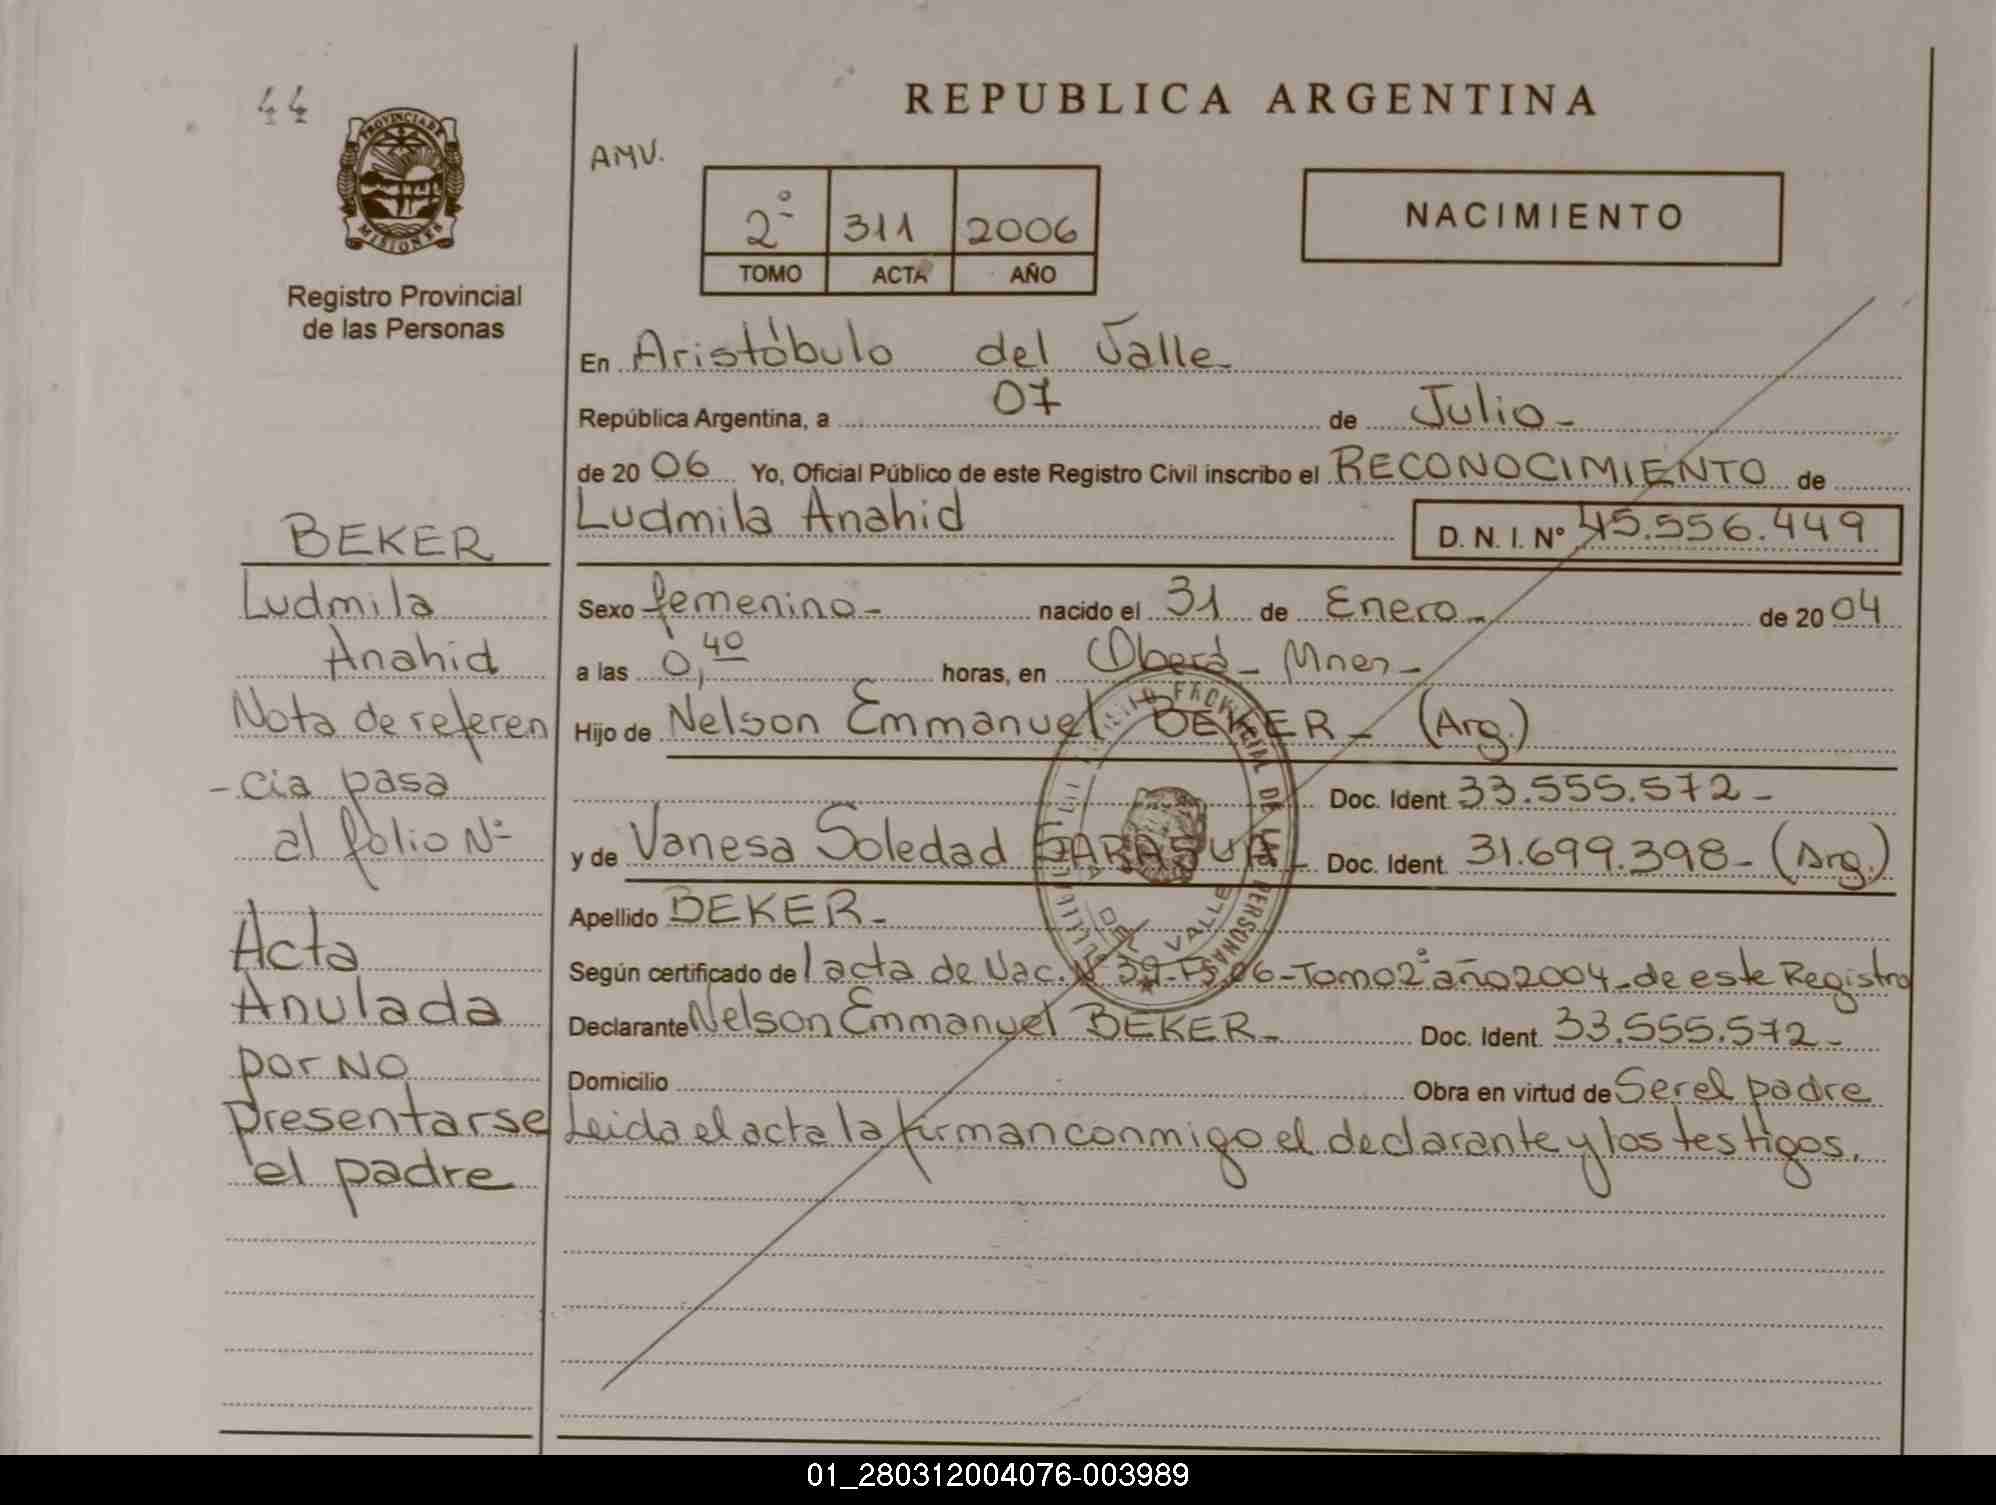 44
PROVINCIA DE
MISIONES
Registro Provincial
de las Personas
REPUBLICA ARGENTINA
AMV.
2º 311 2006
TOMO ACTA AÑO
NACIMIENTO
En Aristóbulo del Valle
República Argentina, a 07 de Julio -
de 20 06 Yo, Oficial Público de este Registro Civil inscribo el RECONOCIMIENTO de
Ludmila Anahid
D. N. I. Nº 45.556.449
Sexo femenino - nacido el 31 de Enero - de 20 04
a las 0,40 horas, en Oberá - Mnes -
Hijo de Nelson Emmanuel BEKER - (Arg.)
Doc. Ident. 33.555.572 -
y de Vanesa Soledad Doc. Ident. 31.699.398 - (Arg.)
Apellido BEKER -
Según certificado de l acta de Nac. Nº 39 - Fs. 06 - Tomo 2º año 2004 - de este Registro
Declarante Nelson Emmanuel BEKER - Doc. Ident. 33.555.572 -
Domicilio Obra en virtud de Ser el padre
Leida el acta la firman conmigo el declarante y los testigos.
BEKER
Ludmila
Anahid
Nota de referen
- cia pasa
al folio Nº
Acta
Anulada
por NO
presentarse
el padre
PROVINCIAL DE LAS PERSONAS
DEL VALLE
01_280312004076-003989